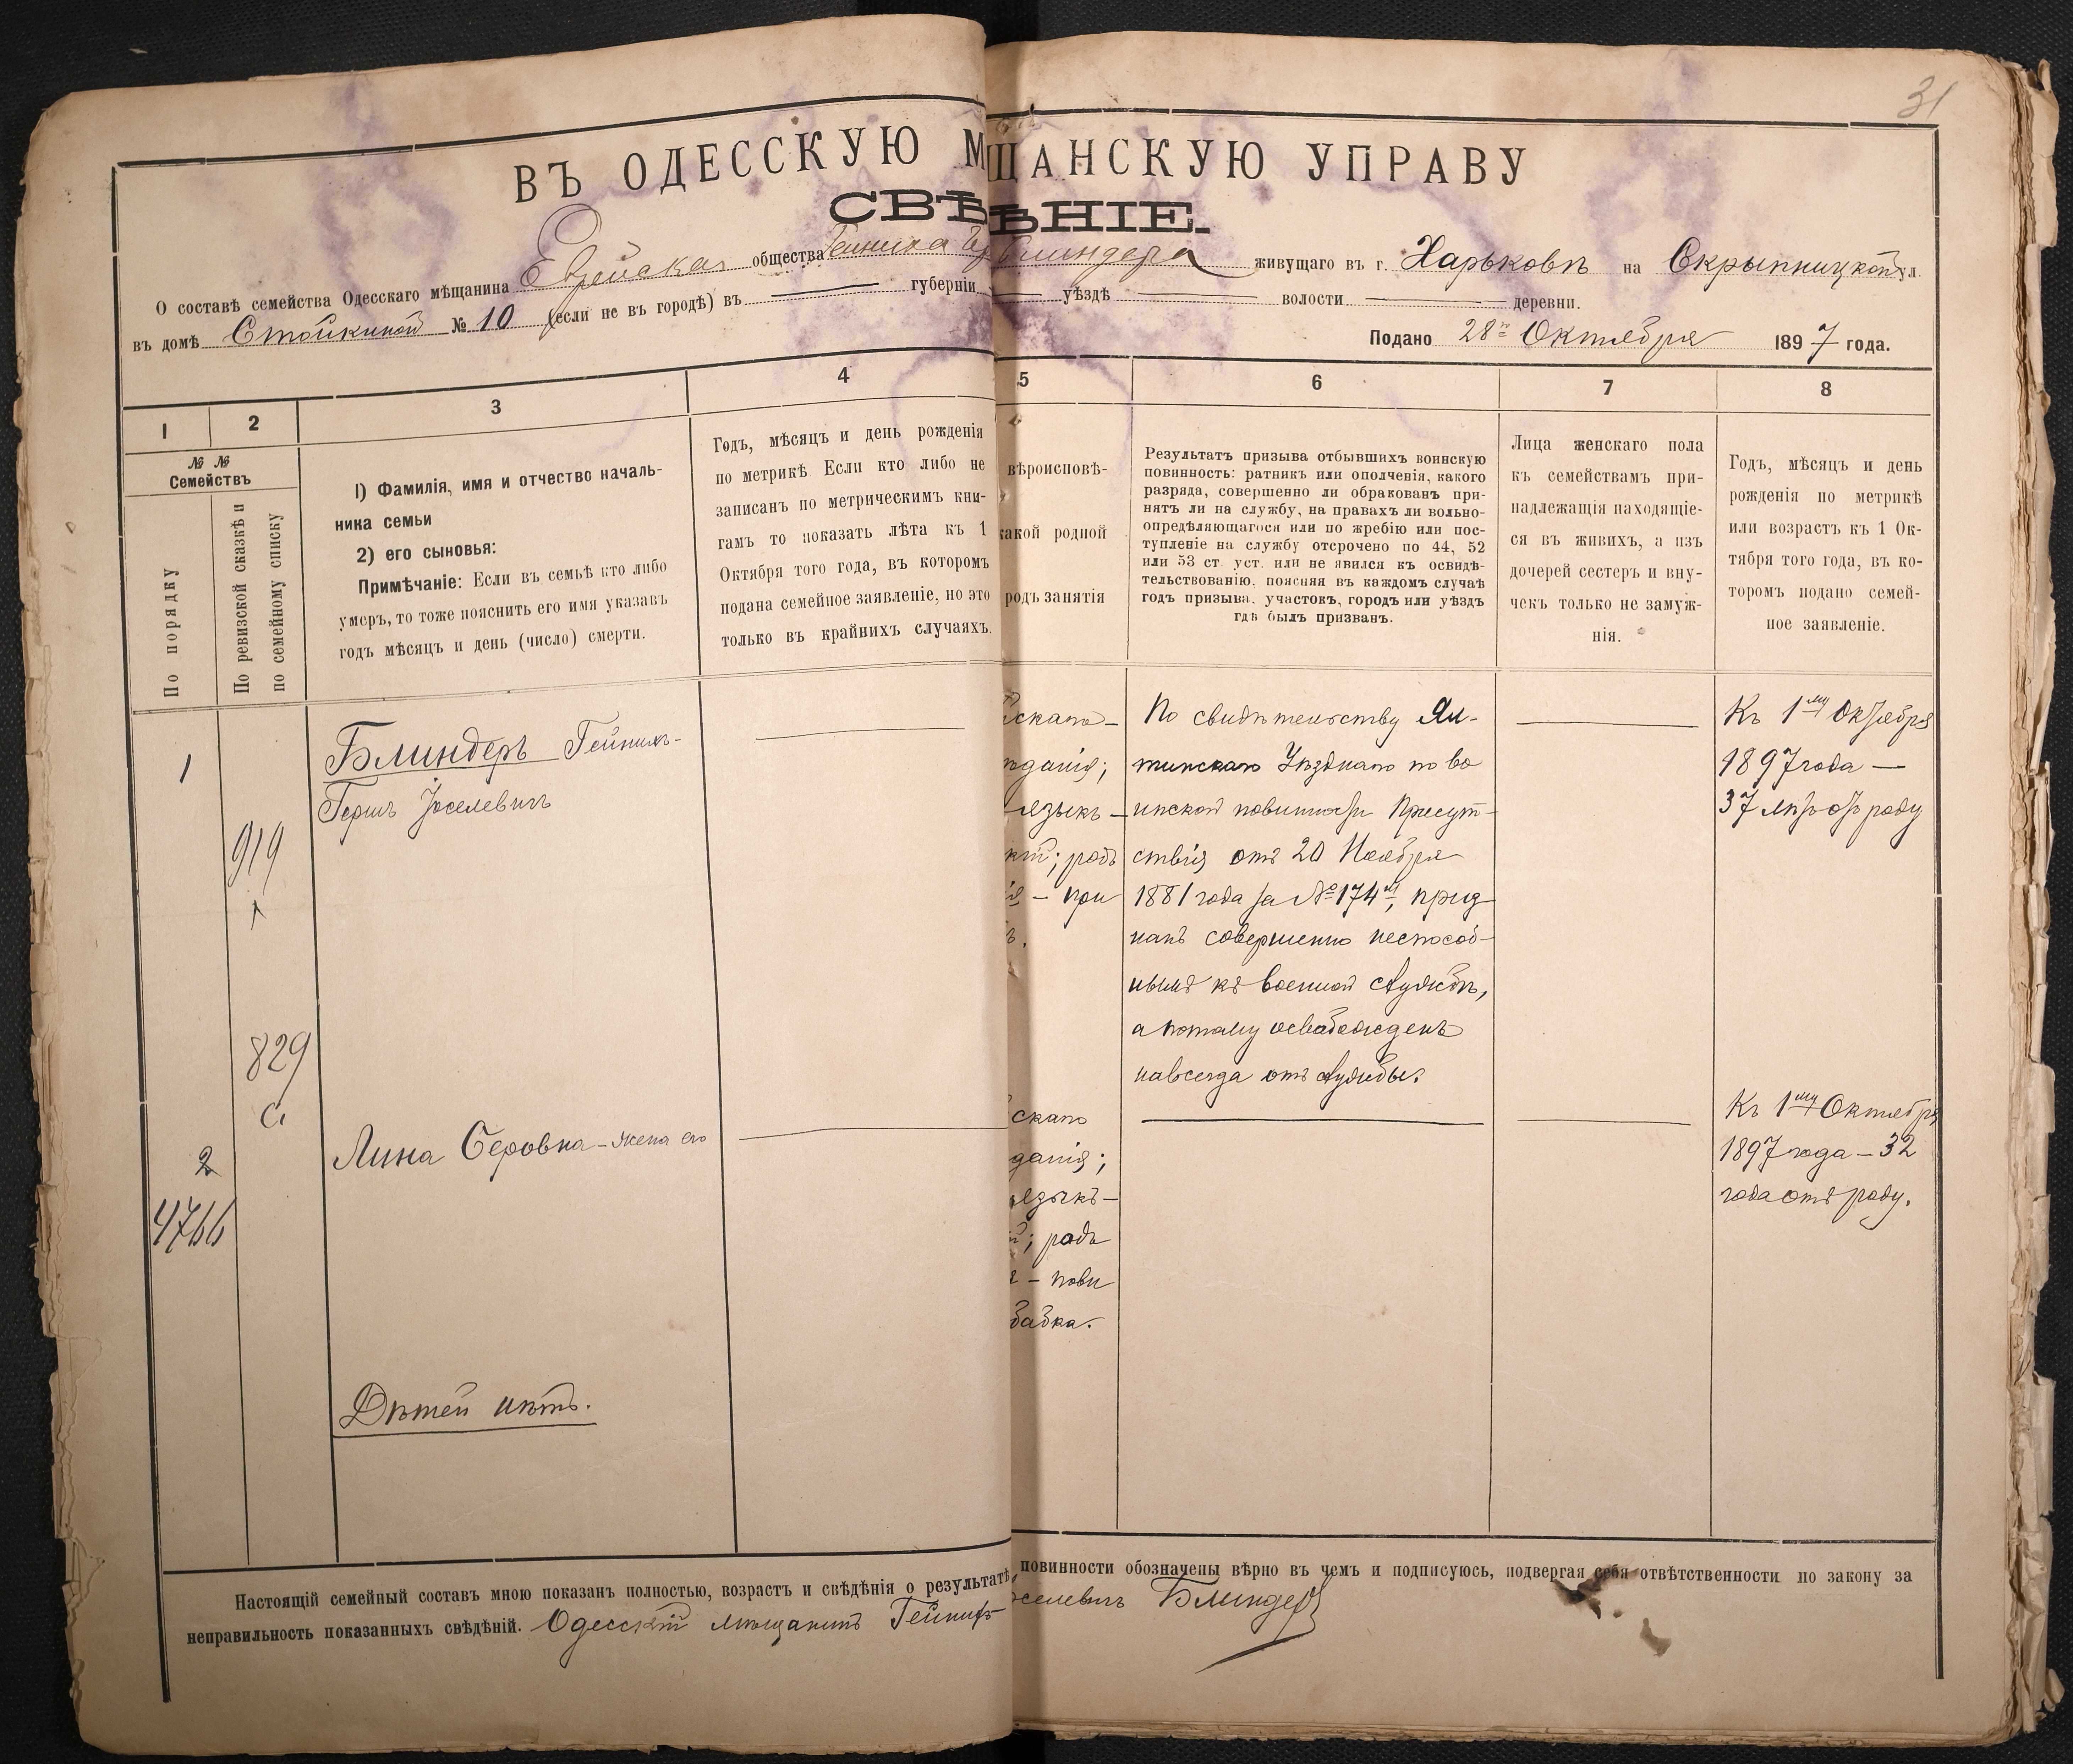 31
ВЪ ОДЕССКУЮ М ЩАНСКУЮ УПРАВУ
СВѢ ѢНІЕ.
О составѣ семейства Одесскаго мѣщанина Еврейскаго общества Блиндера живущаго въ г. Харьковѣ на Скрыпницкой ул.
въ домѣ Стойкиной № 10 (если не въ городѣ) въ — губерніи — уѣздѣ — волости — деревни.
Подано 28го Октября 1897 года.
1 2 3 4 5 6 7 8
№ №
Семействъ
По порядку
По ревизской сказкѣ и
по семейному списку
1) Фамилія, имя и отчество началь-
ника семьи
2) его сыновья:
Примѣчаніе: Если въ семьѣ кто либо
умеръ, то тоже пояснить его имя указавъ
годъ мѣсяцъ и день (число) смерти.
Годъ, мѣсяцъ и день рожденія
по метрикѣ Если кто либо не
записанъ по метрическимъ кни-
гамъ то показать лѣта къ 1
Октября того года, въ которомъ
подана семейное заявленіе, но это
только въ крайнихъ случаяхъ.
вѣроисповѣ-
какой родной
родъ занятія
Результатъ призыва отбывшихъ воинскую
повинность: ратникъ или ополченія, какого
разряда, совершенно ли обракованъ при-
нятъ ли на службу, на правахъ ли вольно-
опредѣляющагося или по жребію или пос-
тупленіе на службу отсрочено по 44, 52
или 53 ст. уст. или не явился къ освидѣ-
тельствованію, поясняя въ каждомъ случаѣ
годъ призыва, участокъ, городъ или уѣздъ
гдѣ былъ призванъ.
Лица женскаго пола
къ семействамъ при-
надлежащія находящіе-
ся въ живихъ, а изъ
дочерей сестеръ и вну-
чекъ только не замуж-
нія.
Годъ, мѣсяцъ и день
рожденія по метрикѣ
или возрастъ къ 1 Ок-
тября того года, въ ко-
торомъ подано семей-
ное заявленіе.
1
919
Блиндеръ Гейнихъ-
Гершъ Іоселевичъ
скаго—
даніѧ;
языкъ—
кій; родъ
— при
По свидѣтельству Ял-
тинскаго Уѣзднаго по во
инской повинности Присут-
ствія отъ 20 Ноября
1881 года за №174м, приз
нанъ совершенно неспособ-
нымъ къ военной службѣ,
а потому освобожденъ
навсегда отъ службы.
Къ 1му Октября
1897 года —
37 лѣтъ отъ роду
829
с.
2
4766
Лина Серовна - жена его
скаго
данія;
языкъ—
й; родъ
— пови
бабка.
Къ 1му Октября
1897 года — 32
года отъ роду.
Дѣтей нѣтъ.
Настоящій семейный составъ мною показанъ полностью, возрастъ и свѣдѣнія о результатѣ, повинности обозначены вѣрно въ чемъ и подписуюсь, подвергая себя отвѣтственности по закону за
неправильность показанныхъ свѣдѣній. Одесскій мѣщанинъ Гейнихъ селевичъ Блиндеръ